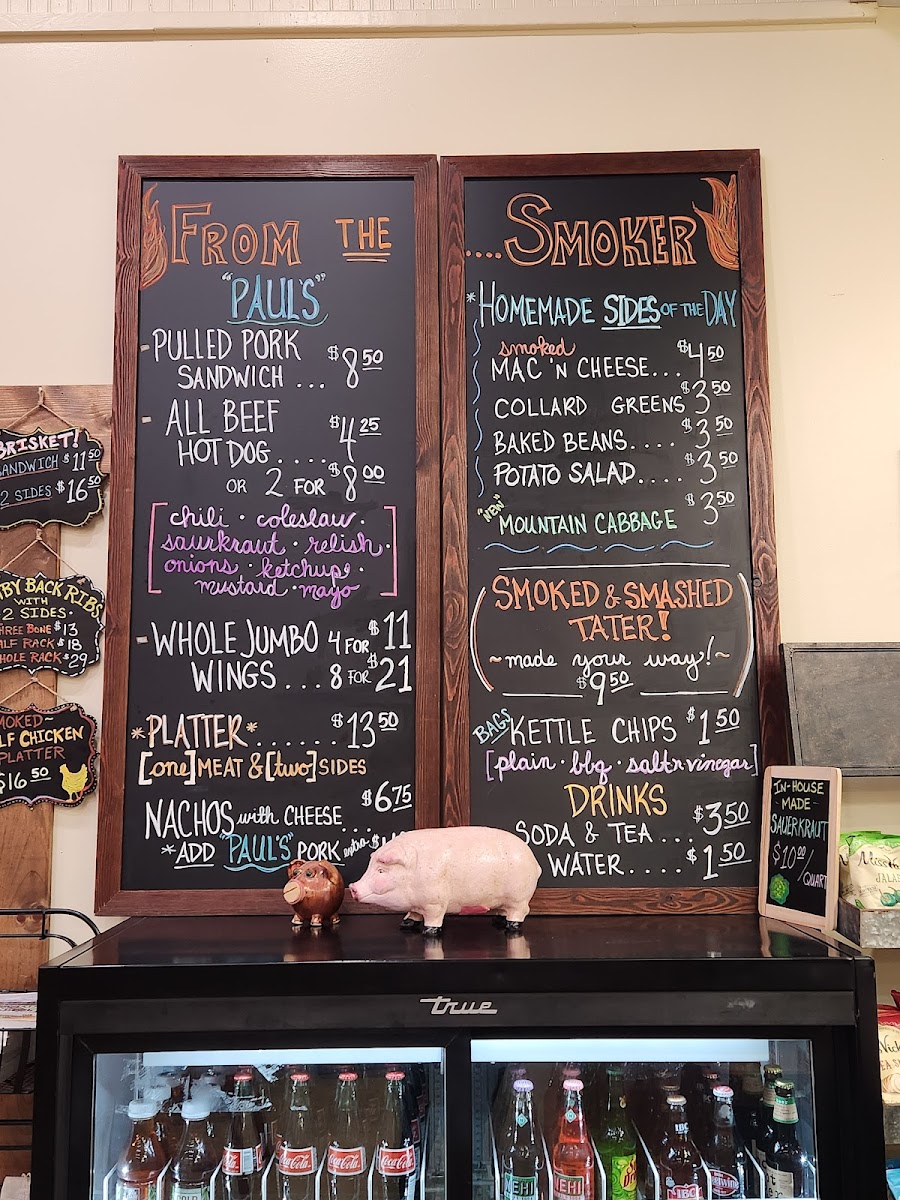 FROM THE
"PAUL'S"
- PULLED PORK
SANDWICH ... $8.50
- ALL BEEF
HOT DOG .... $4.25
OR 2 FOR $8.00
[chili · coleslaw ·
saurkraut · relish ·
onions · ketchup ·
mustard · mayo]
- WHOLE JUMBO 4 FOR $11
WINGS ... 8 FOR $21
*PLATTER* ...... $13.50
[one] MEAT & [two] SIDES
NACHOS with CHEESE .... $6.75
*ADD "PAUL'S" PORK extra
....SMOKER
*HOMEMADE SIDES OF THE DAY
smoked
MAC 'N CHEESE... $4.50
COLLARD GREENS $3.50
BAKED BEANS.... $3.50
POTATO SALAD.... $3.50
"NEW" MOUNTAIN CABBAGE $3.50
SMOKED & SMASHED
TATER!
~made your way!~
$9.50
BAGS KETTLE CHIPS $1.50
[plain · bbq · salt n vinegar]
DRINKS
SODA & TEA ... $3.50
WATER.... $1.50
BRISKET!
SANDWICH $11.50
2 SIDES · $16.50
BY BACK RIBS
WITH
2 SIDES·
THREE BONE $13
HALF RACK $18
WHOLE RACK $29
SMOKED~
LF CHICKEN
PLATTER
$16.50
IN-HOUSE
MADE -
SAUERKRAUT
$10.00/QUART
true
Coca-Cola
Coca-Cola
Coca-Cola
NEHI
NEHI
IBC